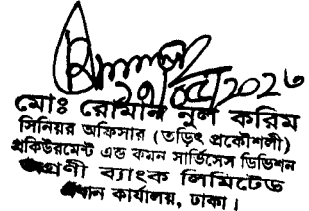 ২০২৩
মোঃ রোমান নুল করিম
সিনিয়র অফিসার (তড়িৎ প্রকৌশলী)
প্রকিউরমেন্ট এন্ড কমন সার্ভিসেস ডিভিশন
অগ্রণী ব্যাংক লিমিটেড
প্রধান কার্যালয়, ঢাকা।